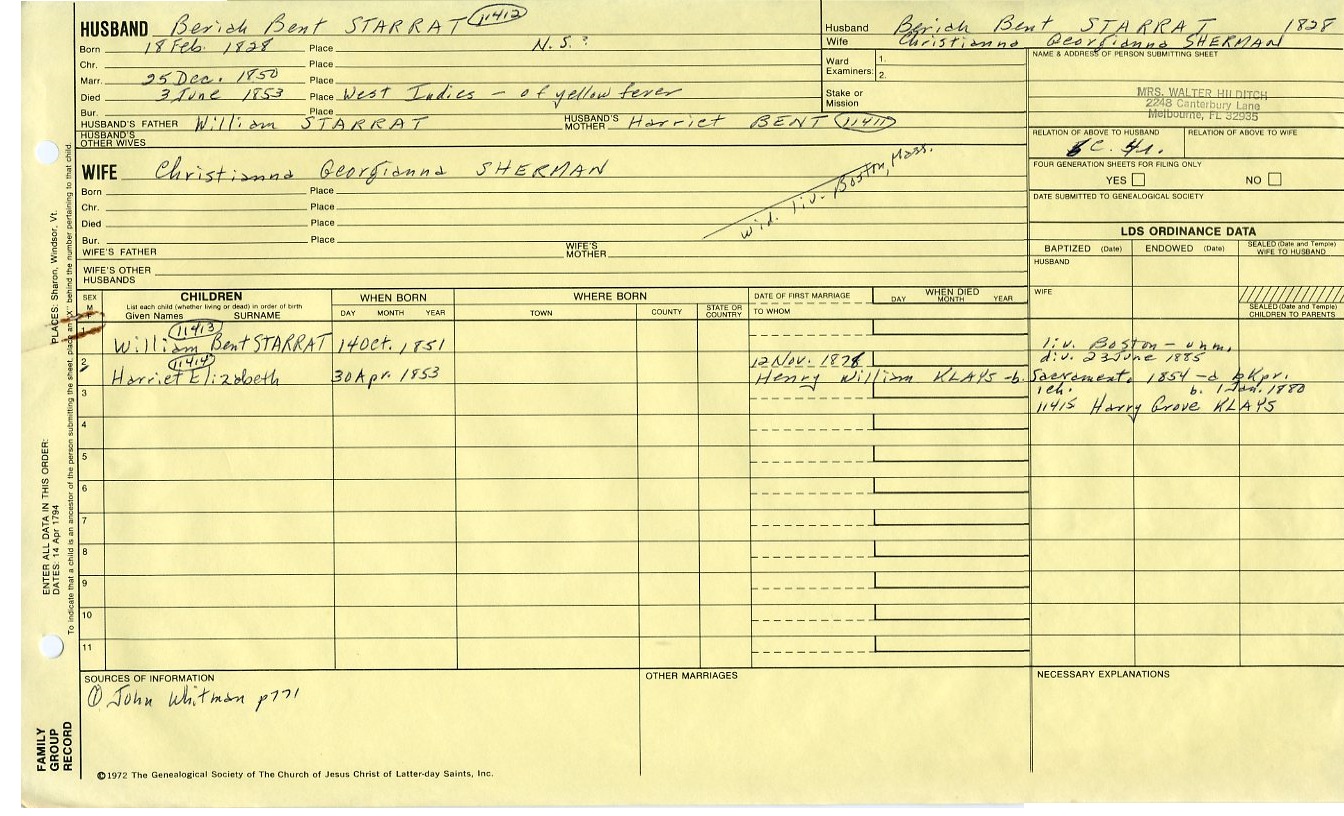 HUSBAND Beriah Bent STARRAT 11412
Born 18 Feb. 1828 Place N.S.?
Chr. Place
Marr. 25 Dec. 1850 Place
Died 3 June 1853 Place West Indies - of yellow fever
Bur. Place
HUSBAND'S FATHER William STARRAT HUSBAND'S MOTHER Harriet BENT 11411
HUSBAND'S OTHER WIVES
WIFE Christianna Georgianna SHERMAN
Born Place
Chr. Place
Died Place
Bur. Place
wid. liv. Boston, Mass.
WIFE'S FATHER WIFE'S MOTHER
WIFE'S OTHER HUSBANDS
Husband Beriah Bent STARRAT 1828
Wife Christianna Georgianna SHERMAN
Ward Examiners: 1.
2.
Stake or Mission
NAME & ADDRESS OF PERSON SUBMITTING SHEET
MRS. WALTER HILDITCH
2248 Canterbury Lane
Melbourne, FL 32935
RELATION OF ABOVE TO HUSBAND RELATION OF ABOVE TO WIFE
FOUR GENERATION SHEETS FOR FILING ONLY
YES NO
DATE SUBMITTED TO GENEALOGICAL SOCIETY
LDS ORDINANCE DATA
BAPTIZED (Date) ENDOWED (Date) SEALED (Date and Temple) WIFE TO HUSBAND
HUSBAND
WIFE
SEALED (Date and Temple) CHILDREN TO PARENTS
SEX M F
CHILDREN
List each child (whether living or dead) in order of birth
Given Names SURNAME
WHEN BORN
DAY MONTH YEAR
WHERE BORN
TOWN COUNTY STATE OR COUNTRY
DATE OF FIRST MARRIAGE
TO WHOM
WHEN DIED
DAY MONTH YEAR
1 11413
William Bent STARRAT 14 Oct. 1851 liv. Boston - unm.
2 11414 12 Nov. 1878 div. 23 June 1885
Harriet Elizabeth 30 Apr. 1853 Henry William KLAYS - b. Sacramento, 1854 - a bkpr.
3 1 ch. b. 1 Jan. 1880
11415 Harry Grove KLAYS
4
5
6
7
8
9
10
11
SOURCES OF INFORMATION
① John Whitman p771
OTHER MARRIAGES
NECESSARY EXPLANATIONS
©1972 The Genealogical Society of The Church of Jesus Christ of Latter-day Saints, Inc.
FAMILY GROUP RECORD
ENTER ALL DATA IN THIS ORDER:
DATES: 14 Apr 1794 PLACES: Sharon, Windsor, Vt.
To indicate that a child is an ancestor of the person submitting the sheet, place an "X" behind the number pertaining to that child.